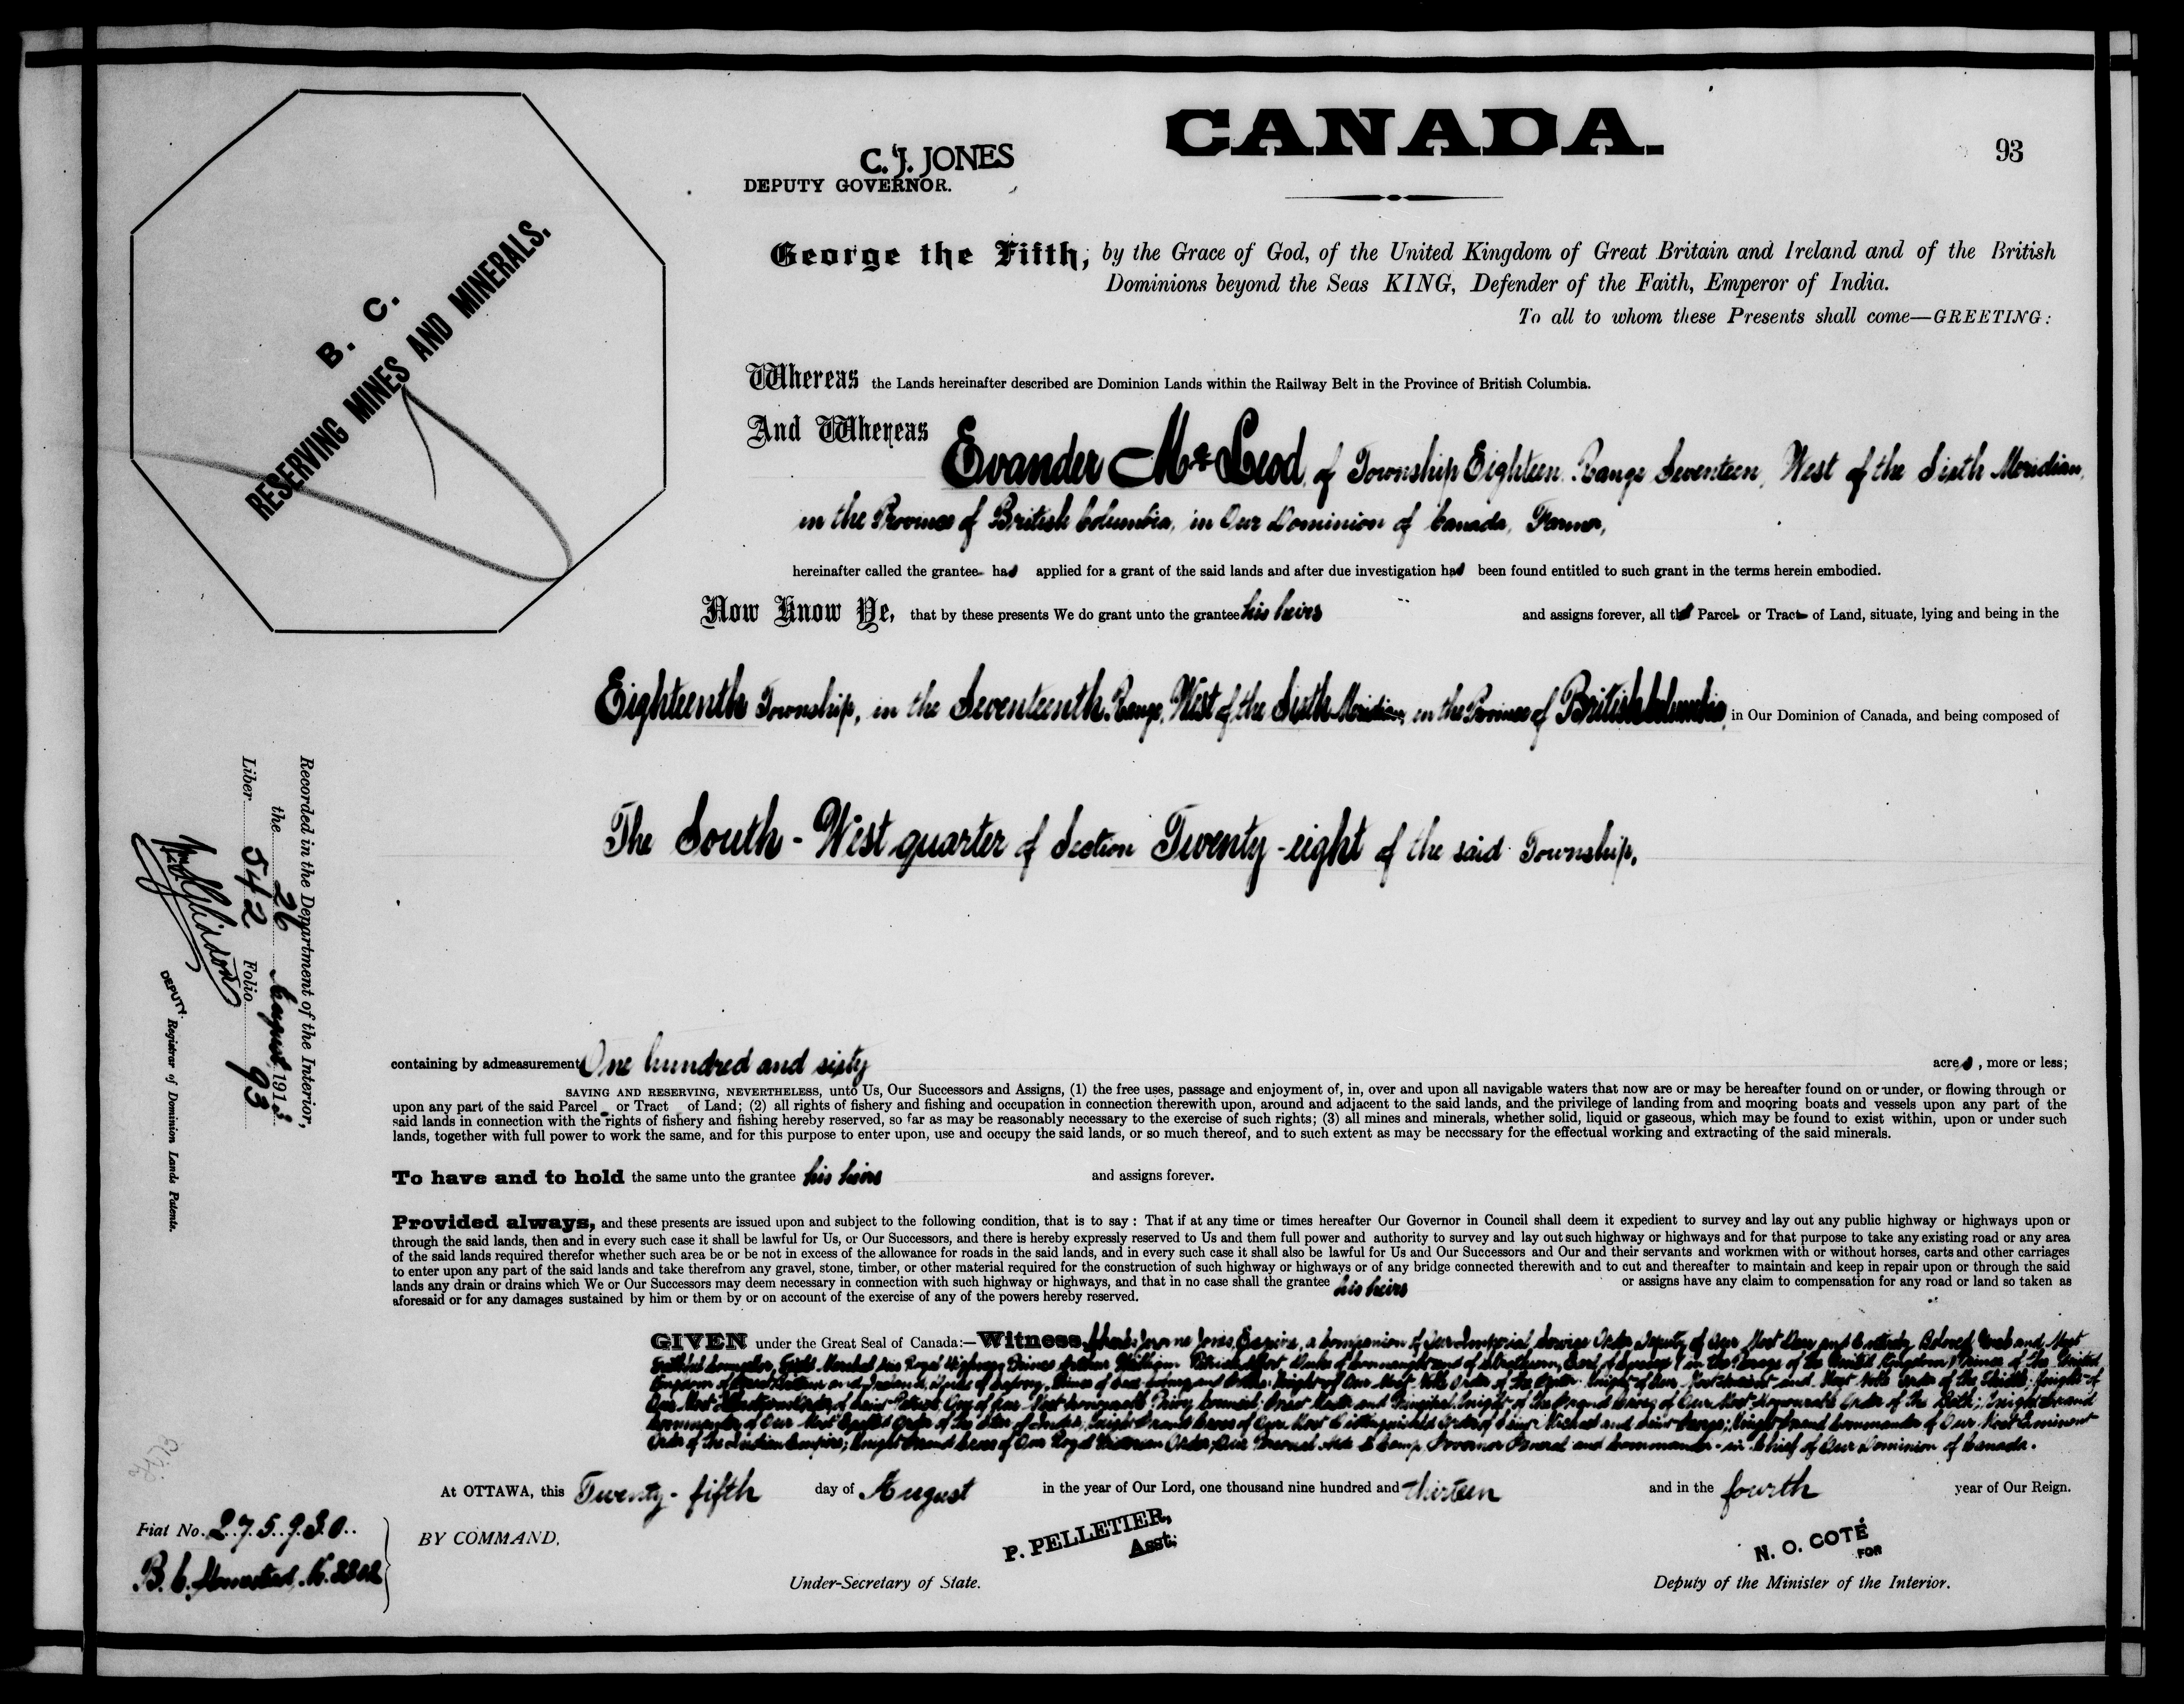 CANADA.
93
C. J. JONES
DEPUTY GOVERNOR.
B. C.
RESERVING MINES AND MINERALS.
George the Fifth, by the Grace of God, of the United Kingdom of Great Britain and Ireland and of the British
Dominions beyond the Seas KING, Defender of the Faith, Emperor of India.
To all to whom these Presents shall come—GREETING:
Whereas the Lands hereinafter described are Dominion Lands within the Railway Belt in the Province of British Columbia.
And Whereas Evander McLeod, of Township Eighteen, Range Seventeen, West of the Sixth Meridian,
in the Province of British Columbia, in Our Dominion of Canada, Farmer,
hereinafter called the grantee has applied for a grant of the said lands and after due investigation has been found entitled to such grant in the terms herein embodied.
Now Know Ye, that by these presents We do grant unto the grantee his heirs and assigns forever, all that Parcel or Tract of Land, situate, lying and being in the
Eighteenth Township, in the Seventeenth Range, West of the Sixth Meridian, in the Province of British Columbia, in Our Dominion of Canada, and being composed of
The South-West quarter of Section Twenty-eight of the said Township,
containing by admeasurement One hundred and sixty acres, more or less;
SAVING AND RESERVING, NEVERTHELESS, unto Us, Our Successors and Assigns, (1) the free uses, passage and enjoyment of, in, over and upon all navigable waters that now are or may be hereafter found on or under, or flowing through or
upon any part of the said Parcel or Tract of Land; (2) all rights of fishery and fishing and occupation in connection therewith upon, around and adjacent to the said lands, and the privilege of landing from and mooring boats and vessels upon any part of the
said lands in connection with the rights of fishery and fishing hereby reserved, so far as may be reasonably necessary to the exercise of such rights; (3) all mines and minerals, whether solid, liquid or gaseous, which may be found to exist within, upon or under such
lands, together with full power to work the same, and for this purpose to enter upon, use and occupy the said lands, or so much thereof, and to such extent as may be necessary for the effectual working and extracting of the said minerals.
To have and to hold the same unto the grantee his heirs and assigns forever.
Provided always, and these presents are issued upon and subject to the following condition, that is to say : That if at any time or times hereafter Our Governor in Council shall deem it expedient to survey and lay out any public highway or highways upon or
through the said lands, then and in every such case it shall be lawful for Us, or Our Successors, and there is hereby expressly reserved to Us and them full power and authority to survey and lay out such highway or highways and for that purpose to take any existing road or any area
of the said lands required therefor whether such area be or be not in excess of the allowance for roads in the said lands, and in every such case it shall also be lawful for Us and Our Successors and Our and their servants and workmen with or without horses, carts and other carriages
to enter upon any part of the said lands and take therefrom any gravel, stone, timber, or other material required for the construction of such highway or highways or of any bridge connected therewith and to cut and thereafter to maintain and keep in repair upon or through the said
lands any drain or drains which We or Our Successors may deem necessary in connection with such highway or highways, and that in no case shall the grantee his heirs or assigns have any claim to compensation for any road or land so taken as
aforesaid or for any damages sustained by him or them by or on account of the exercise of any of the powers hereby reserved.
GIVEN under the Great Seal of Canada:—Witness, Charles Jerome Jones, Esquire, a Companion of Our Imperial Service Order, Deputy of Our Most Dear and Entirely Beloved Uncle and Most
Faithful Counsellor, Field Marshal His Royal Highness Prince Arthur William Patrick Albert, Duke of Connaught and of Strathearn, Earl of Sussex (in the Peerage of the United Kingdom) Prince of the United
Kingdom of Great Britain and Ireland, Duke of Saxony, Prince of Saxe-Coburg and Gotha; Knight of Our Most Noble Order of the Garter; Knight of Our Most Ancient and Most Noble Order of the Thistle; Knight of
Our Most Illustrious Order of Saint Patrick; One of Our Most Honourable Privy Council; Great Master and Principal Knight of the Grand Cross of Our Most Honourable Order of the Bath; Knight Grand
Commander of Our Most Exalted Order of the Star of India; Knight Grand Cross of Our Most Distinguished Order of Saint Michael and Saint George; Knight Grand Commander of Our Most Eminent
Order of the Indian Empire; Knight Grand Cross of Our Royal Victorian Order; Our Personal Aide de Camp, Governor General and Commander-in-Chief of Our Dominion of Canada.
At OTTAWA, this Twenty-fifth day of August in the year of Our Lord, one thousand nine hundred and thirteen and in the fourth year of Our Reign.
BY COMMAND,
P. PELLETIER,
Asst:
Under-Secretary of State.
N. O. COTÉ
FOR
Deputy of the Minister of the Interior.
Fiat No. 275930
B.C. Homestead N. 8802
Recorded in the Department of the Interior,
the 26 August 1913
Liber 542 Folio 93
DEPUTY Registrar of Dominion Lands Patents.